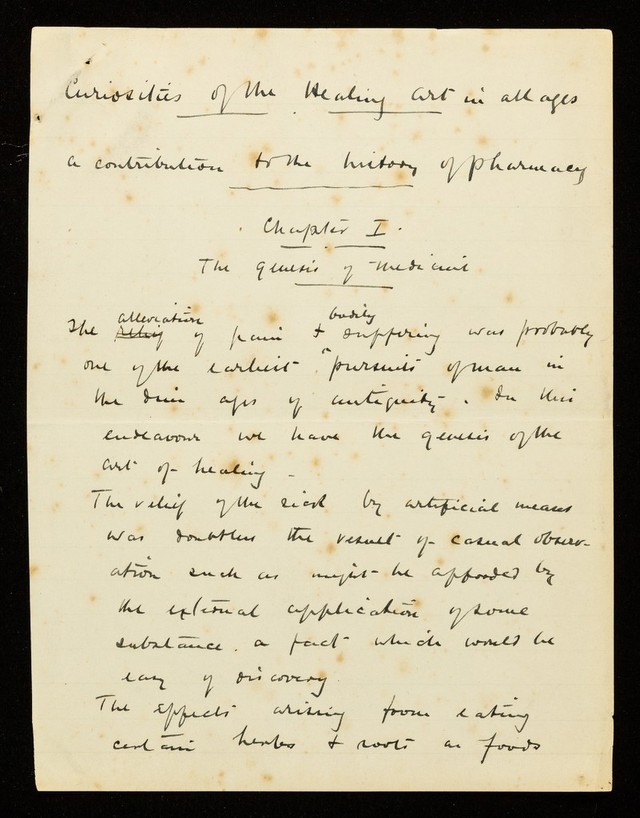 Curiosities of the Healing Art in all ages
a contribution to the history of pharmacy
Chapter I.
The genesis of medicine
alleviation bodily
The relief of pain & suffering was probably
one of the earliest pursuits of man in
the dim ages of antiquity. In this
endeavour we have the genesis of the
art of healing -
The relief of the sick by artificial means
was doubtless the result of casual observ-
ation such as might be afforded by
the external application of some
substance. a fact which would be
easy of discovery.
The effects arising from eating
certain herbs & roots as foods